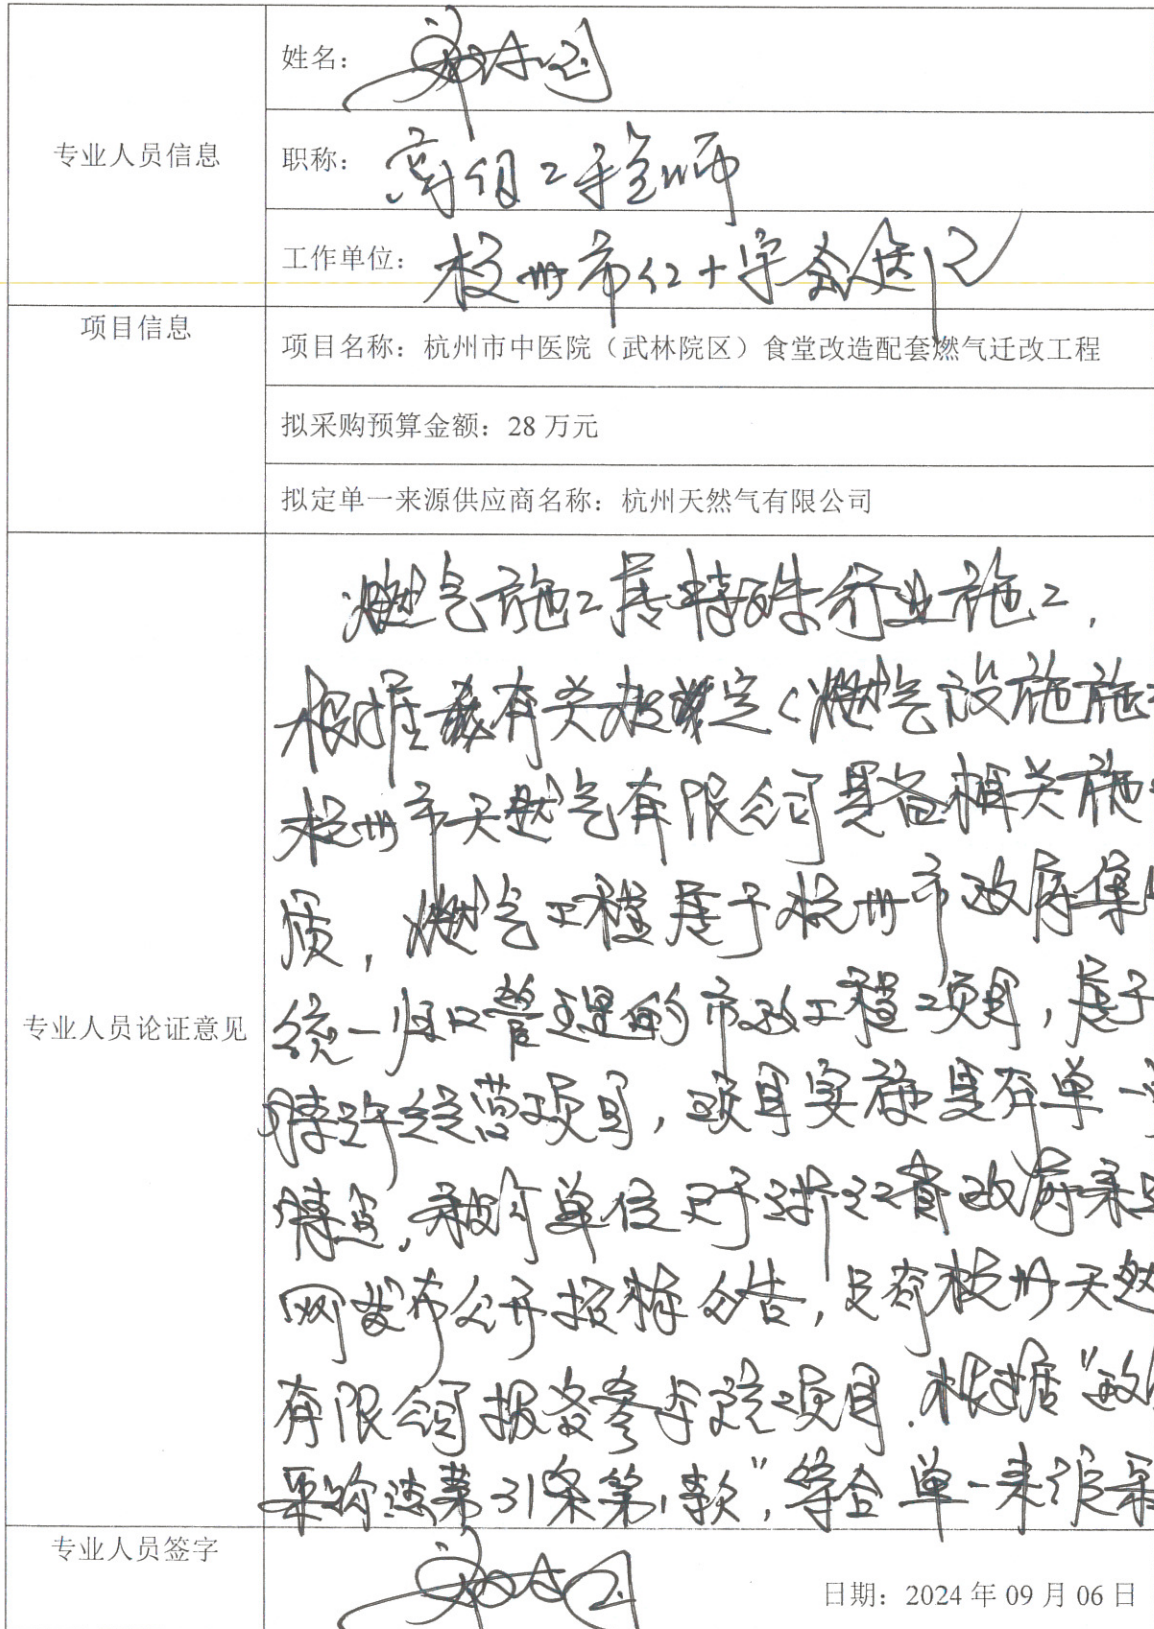 专业人员信息
姓名：
职称：高级工程师
工作单位：杭州市红十字会医院
项目信息
项目名称：杭州市中医院（武林院区）食堂改造配套燃气迁改工程
拟采购预算金额：28 万元
拟定单一来源供应商名称：杭州天然气有限公司
专业人员论证意见
燃气施工属特殊行业施工，
根据 有关 定 燃气设施施
杭州市天然气有限公司具备相关施
质，燃气工程属于杭州市政府集
统一归口管理的市政工程项目，属于
特许经营项目，项目实施具有单一
特定，采购单位已于浙江省政府采
网发布公开招标公告，只有杭州天然
有限公司报名参与该项目．根据“政
采购法第31条第1款”，符合单一来源采
专业人员签字
日期：2024 年 09 月 06 日